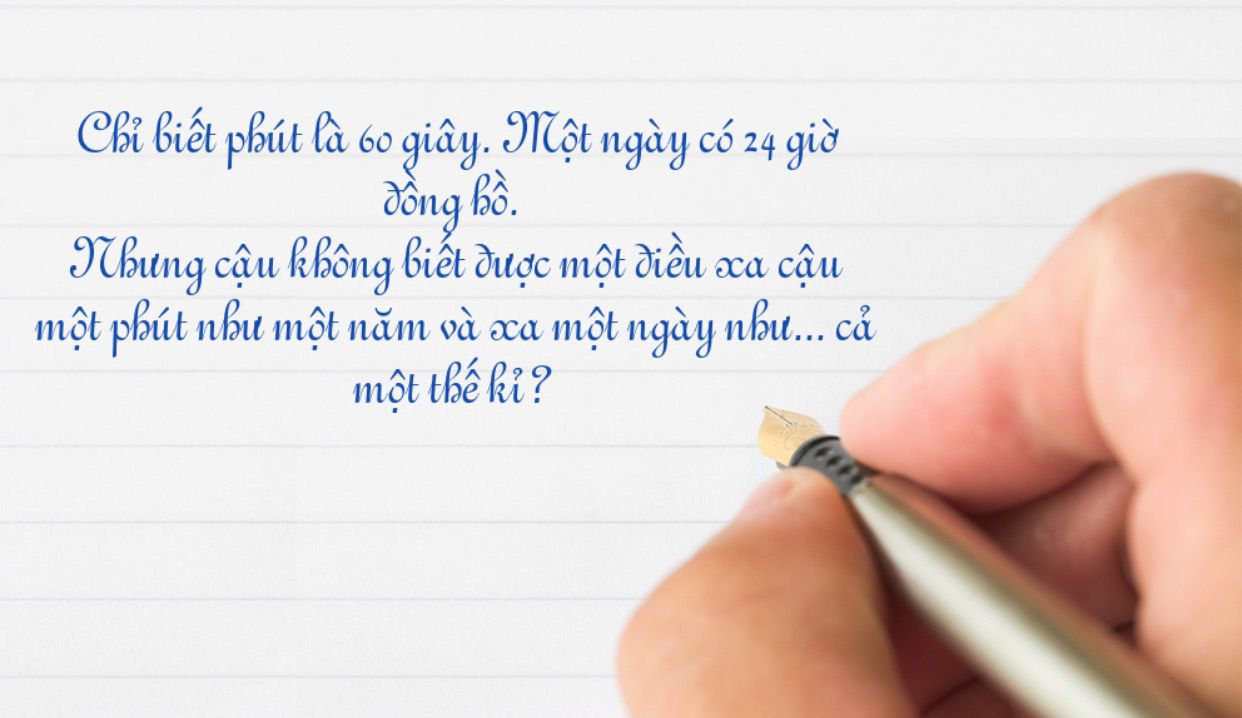 Chỉ biết phút là 60 giây. Một ngày có 24 giờ
đồng hồ.
Nhưng cậu không biết được một điều xa cậu
một phút như một năm và xa một ngày như... cả
một thế kỉ?